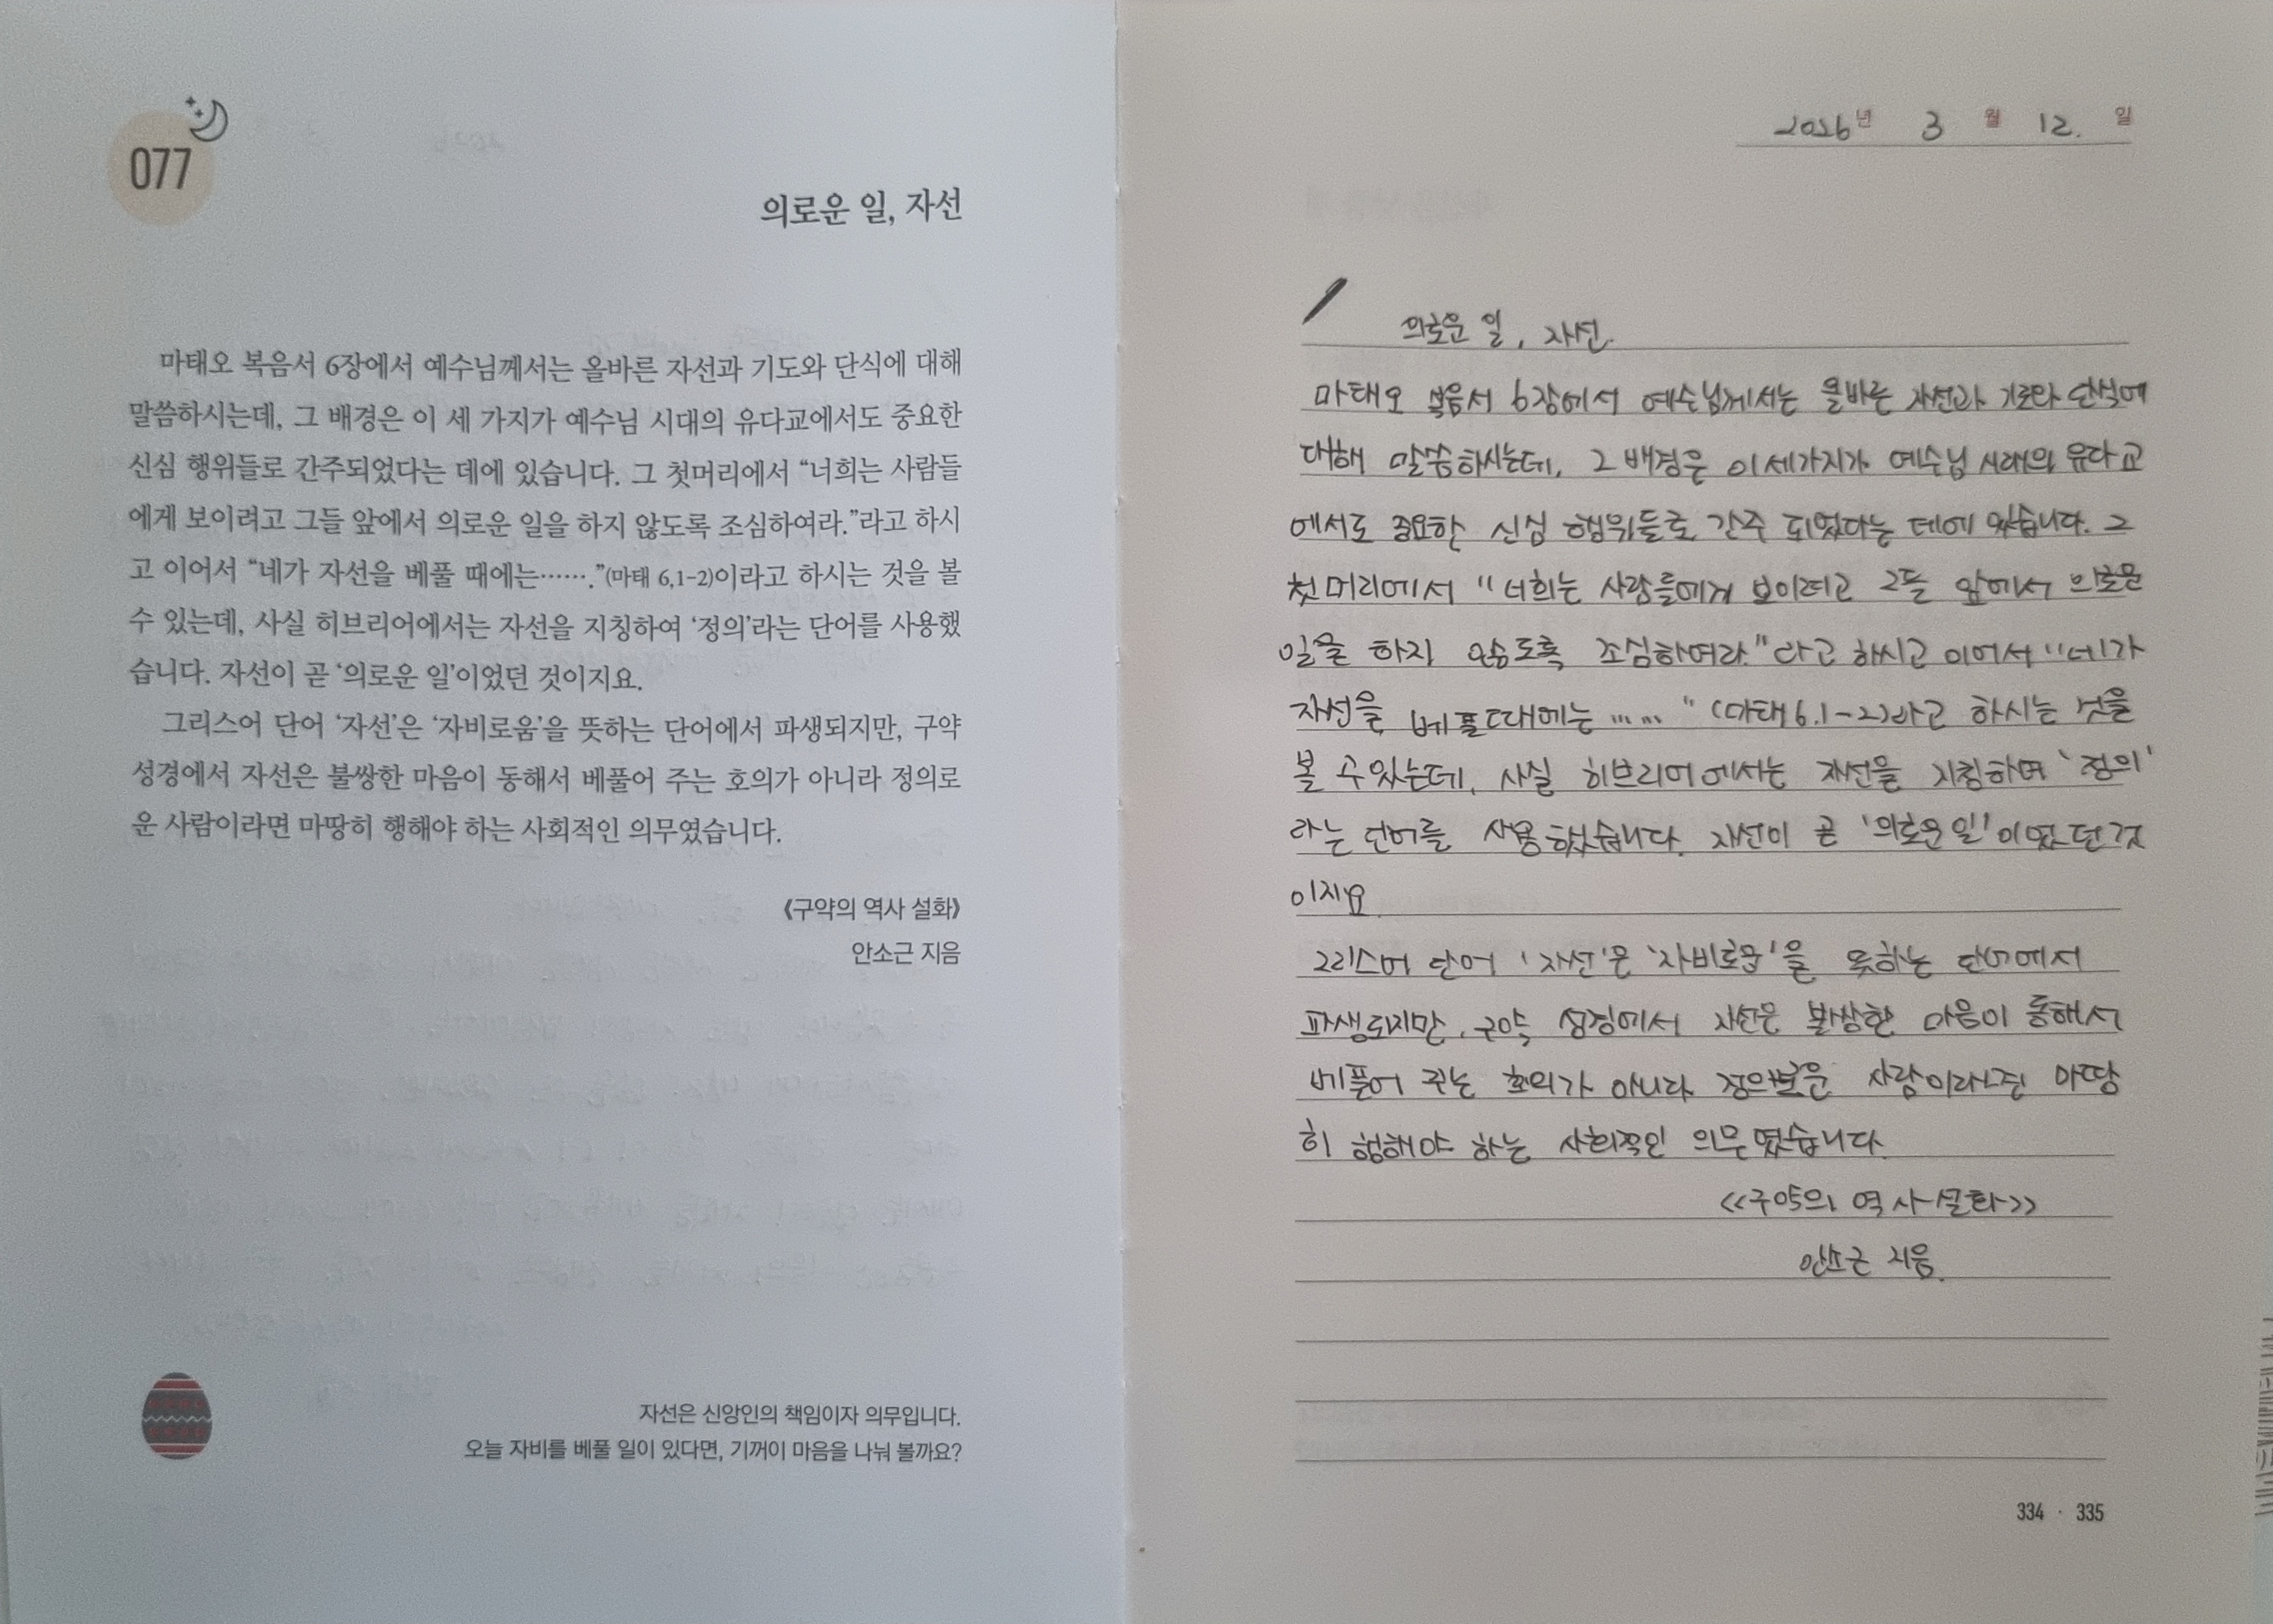 077
의로운 일, 자선
마태오 복음서 6장에서 예수님께서는 올바른 자선과 기도와 단식에 대해
말씀하시는데, 그 배경은 이 세 가지가 예수님 시대의 유다교에서도 중요한
신심 행위들로 간주되었다는 데에 있습니다. 그 첫머리에서 “너희는 사람들
에게 보이려고 그들 앞에서 의로운 일을 하지 않도록 조심하여라.”라고 하시
고 이어서 “네가 자선을 베풀 때에는…….”(마태 6,1-2)이라고 하시는 것을 볼
수 있는데, 사실 히브리어에서는 자선을 지칭하여 ‘정의’라는 단어를 사용했
습니다. 자선이 곧 ‘의로운 일’이었던 것이지요.
그리스어 단어 ‘자선’은 ‘자비로움’을 뜻하는 단어에서 파생되지만, 구약
성경에서 자선은 불쌍한 마음이 동해서 베풀어 주는 호의가 아니라 정의로
운 사람이라면 마땅히 행해야 하는 사회적인 의무였습니다.
《구약의 역사 설화》
안소근 지음
자선은 신앙인의 책임이자 의무입니다.
오늘 자비를 베풀 일이 있다면, 기꺼이 마음을 나눠 볼까요?
2026년 3월 12. 일
의로운 일, 자선.
마태오 복음서 6장에서 예수님께서는 올바른 자선과 기도와 단식에
대해 말씀하시는데, 그 배경은 이 세가지가 예수님 시대의 유다교
에서도 중요한 신심 행위들로 간주 되었다는 데에 있습니다. 그
첫머리에서 "너희는 사람들에게 보이려고 그들 앞에서 의로운
일을 하지 않도록 조심하여라."라고 하시고 이어서 "네가
자선을 베풀때에는 ……" (마태 6.1-2)라고 하시는 것을
볼 수있는데, 사실 히브리어에서는 자선을 지칭하여 '정의'
라는 단어를 사용했습니다. 자선이 곧 '의로운 일'이었던 것
이지요.
그리스어 단어 '자선'은 '자비로움'을 뜻하는 단어에서
파생되지만, 구약 성경에서 자선은 불쌍한 마음이 동해서
베풀어 주는 호의가 아니라 사람이라면 마땅
히 행해야 하는 사회적인 의무였습니다.
<<구약의 역사 설화>>
안소근 지음.
334 · 335